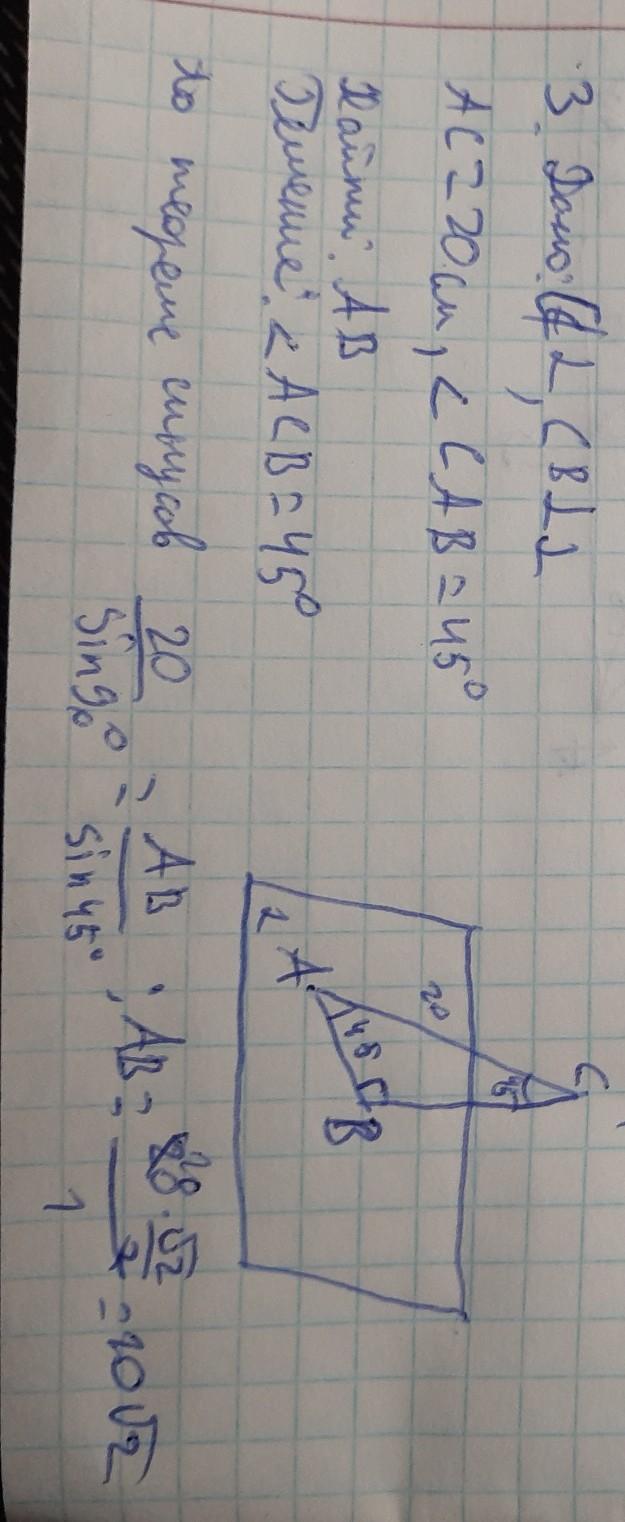 3. Дано: α, CB⊥α
AC=20см, <CAB=45°
Найти: AB
Решение: <ACB=45°
по теореме синусов 20/sin90° = AB/sin45°; AB= (20·√2/2)/1 =10√2
C
20
45
A
45
B
α